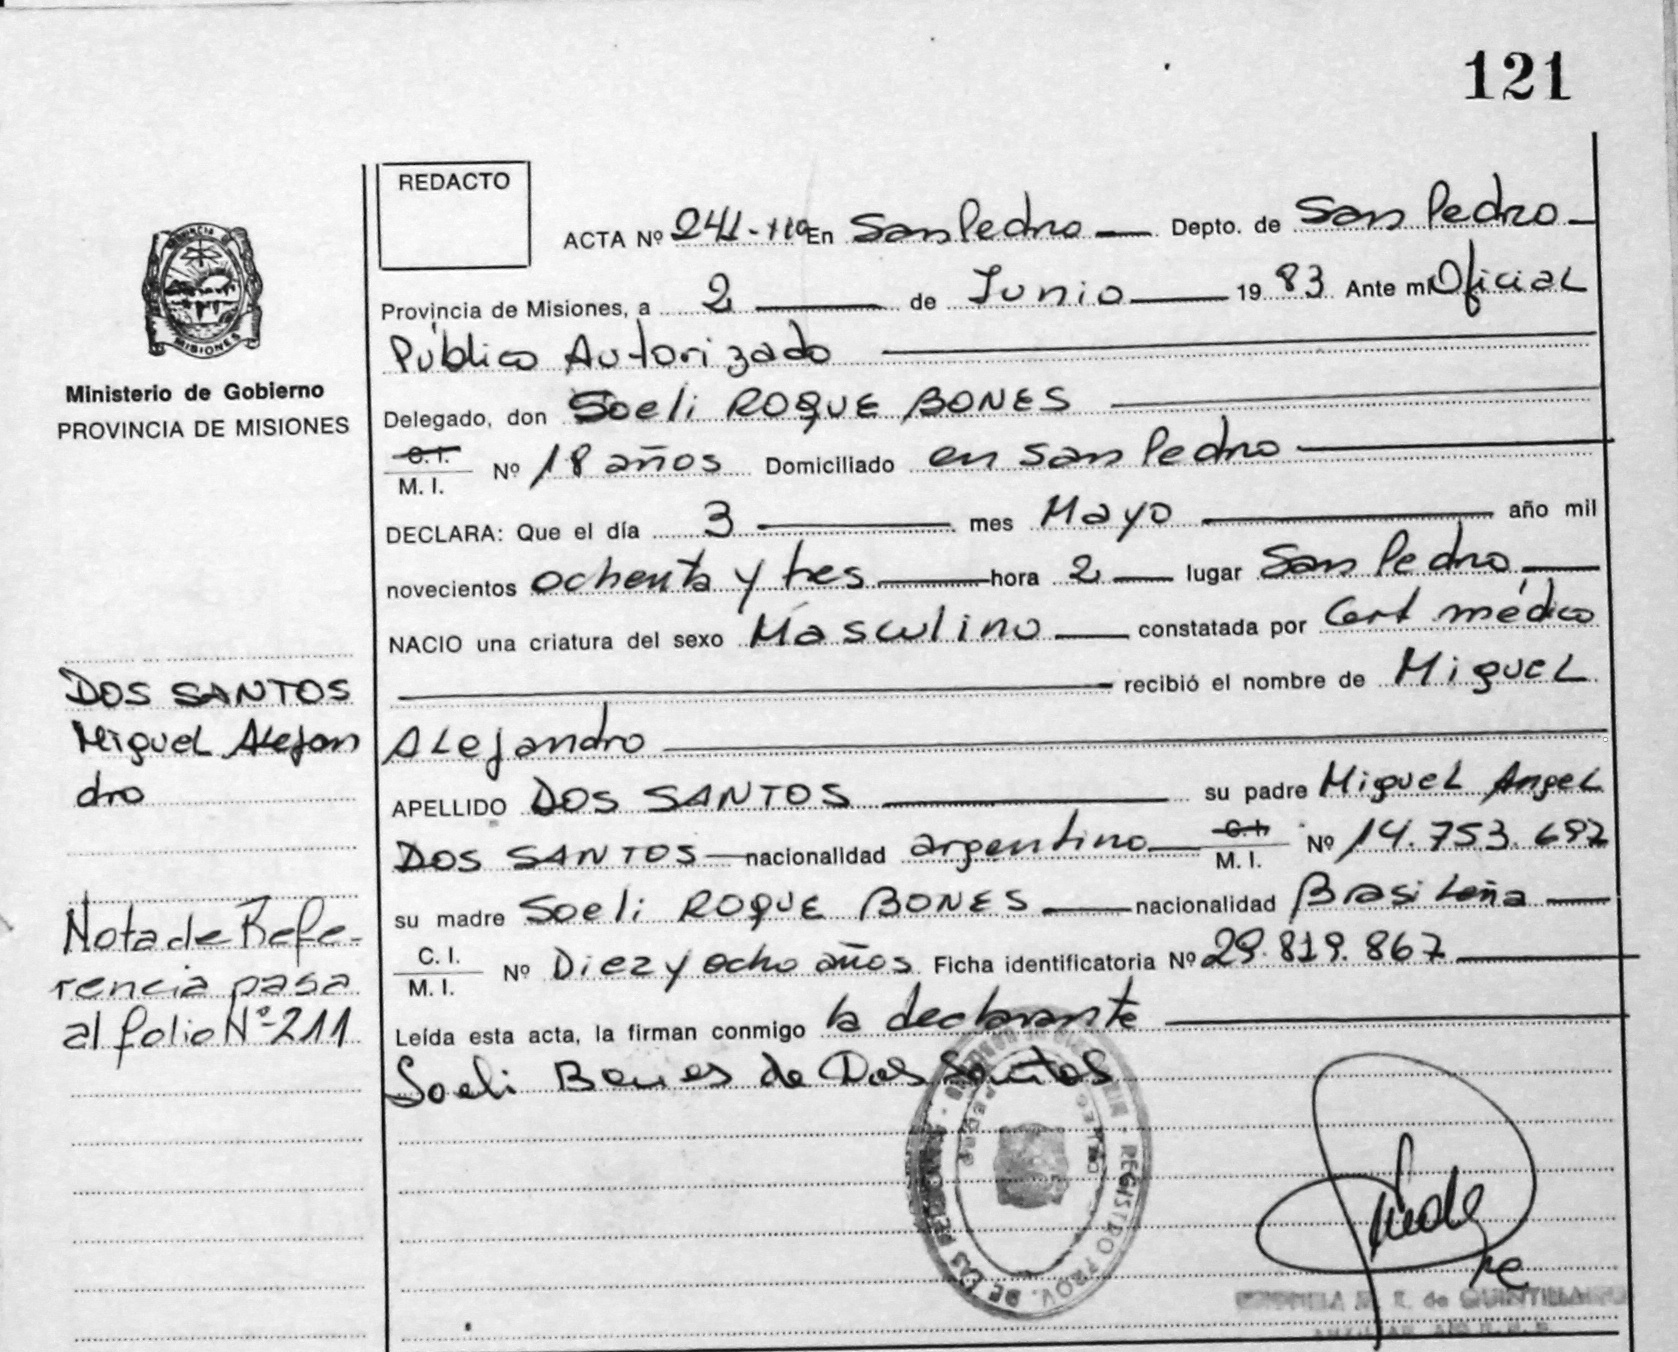 121
REDACTO
ACTA Nº 241- En San Pedro Depto. de San Pedro
Provincia de Misiones, a 2 de Junio 1983 Ante mi Oficial
Público Autorizado
Delegado, don Soeli ROQUE BONES
C. I.
M. I. Nº 18 años Domiciliado en San Pedro
DECLARA: Que el día 3 mes Mayo año mil
novecientos ochenta y tres hora 2 lugar San Pedro
NACIO una criatura del sexo Masculino constatada por Cert médico
recibió el nombre de Miguel
Alejandro
APELLIDO DOS SANTOS su padre Miguel Angel
DOS SANTOS nacionalidad argentino C. I. M. I. Nº 14.753.692
su madre Soeli ROQUE BONES nacionalidad Brasileña
C. I.
M. I. Nº Diez y ocho años Ficha identificatoria Nº 29.819.867
Leída esta acta, la firman conmigo la declarante
Soeli Bones de Dos Santos
PROVINCIA DE
MISIONES
Ministerio de Gobierno
PROVINCIA DE MISIONES
DOS SANTOS
Miguel Alejan
dro
Nota de Refe-
rencia pasa
al folio Nº-211
REGISTRO PROV. DE LAS PERSONAS
de QUINTILLANO